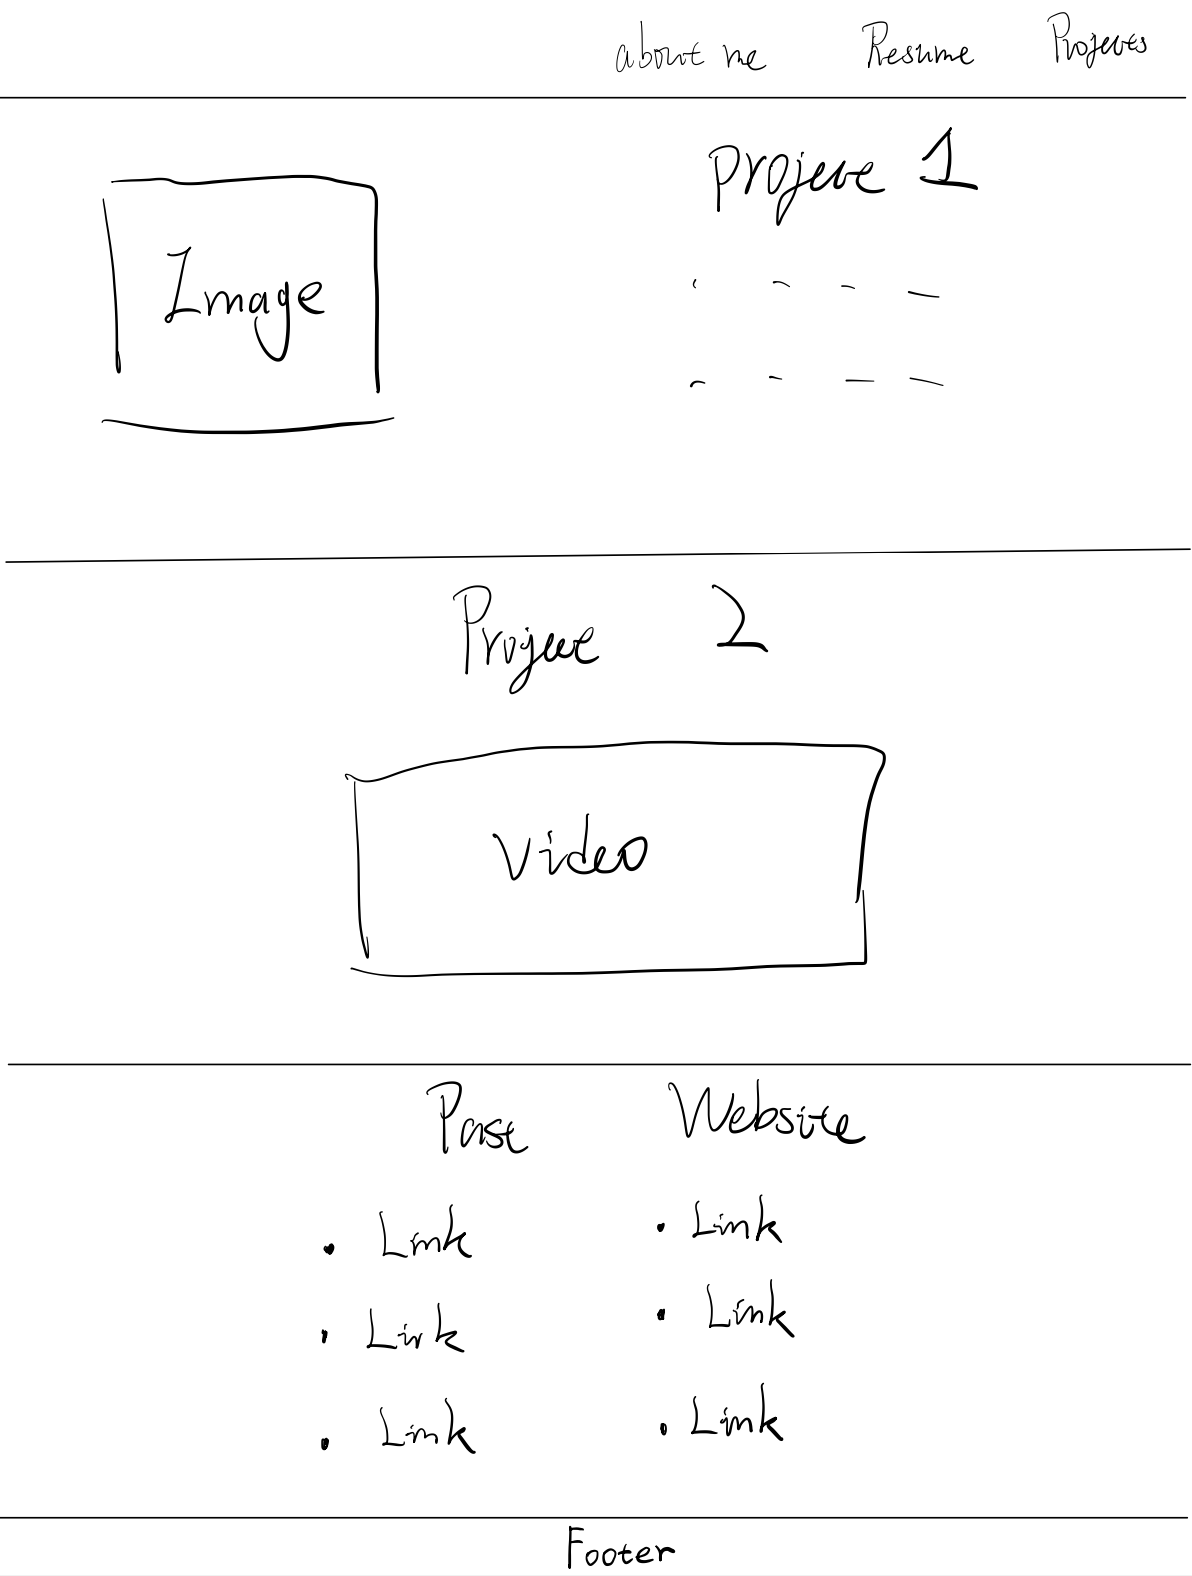 about me Resume Projects
Project 1
Image
Project 2
Video
Past Website
Link Link
Link Link
Link Link
Footer